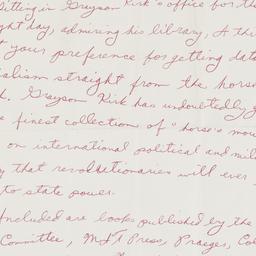 Sitting in Grayson Kirk's office for the
ght day, admiring his library, A thi
t your preference for getting data
ialism straight from the horse
d. Grayson Kirk has undoubtedly g
e finest collection of "horse's mou
on international political and mil
y that revolutionaries will ever
to state power.
Included are books published by the
Committee, MIT Press, Praeger, Col